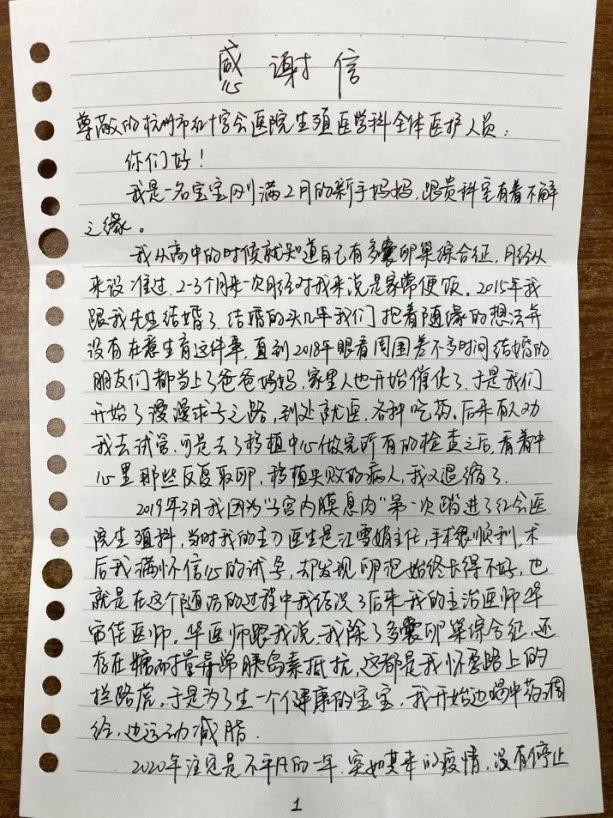 感谢信
尊敬的杭州市红十字会医院生殖医学科全体医护人员：
你们好！
我是一名宝宝刚满2月的新手妈妈，跟贵科室有着不解
之缘。
我从高中的时候就知道自己有多囊卵巢综合征，月经从
来没准过，2-3个月来一次月经对我来说是家常便饭。2015年我
跟我先生结婚了，结婚的头几年我们抱着随缘的想法并
没有在意生育这件事，直到2018年眼看周围差不多时间结婚的
朋友们都当上了爸爸妈妈，家里人也开始催促了，于是我们
开始了漫漫求子之路，到处就医，各种吃药。后来有人劝
我去试管，可是去了移植中心做完所有的检查之后，看着中
心里那些反复取卵，移植失败的病人，我又退缩了。
2019年3月我因为“子宫内膜息肉”第一次踏进了红会医
院生殖科，当时我的主刀医生是江雪娟主任，手术很顺利，术
后我满怀信心的试孕，却发现卵泡始终长得不好，也
就是在这个随访的过程中我结识了后来我的主治医师华
医师。华医师跟我说，我除了多囊卵巢综合征，还
存在糖耐量异常胰岛素抵抗，这都是我怀孕路上的
拦路虎。于是为了生一个健康的宝宝，我开始边喝中药调
经，边运动减脂。
2020年注定是不平凡的一年，突如其来的疫情，没有停止
1